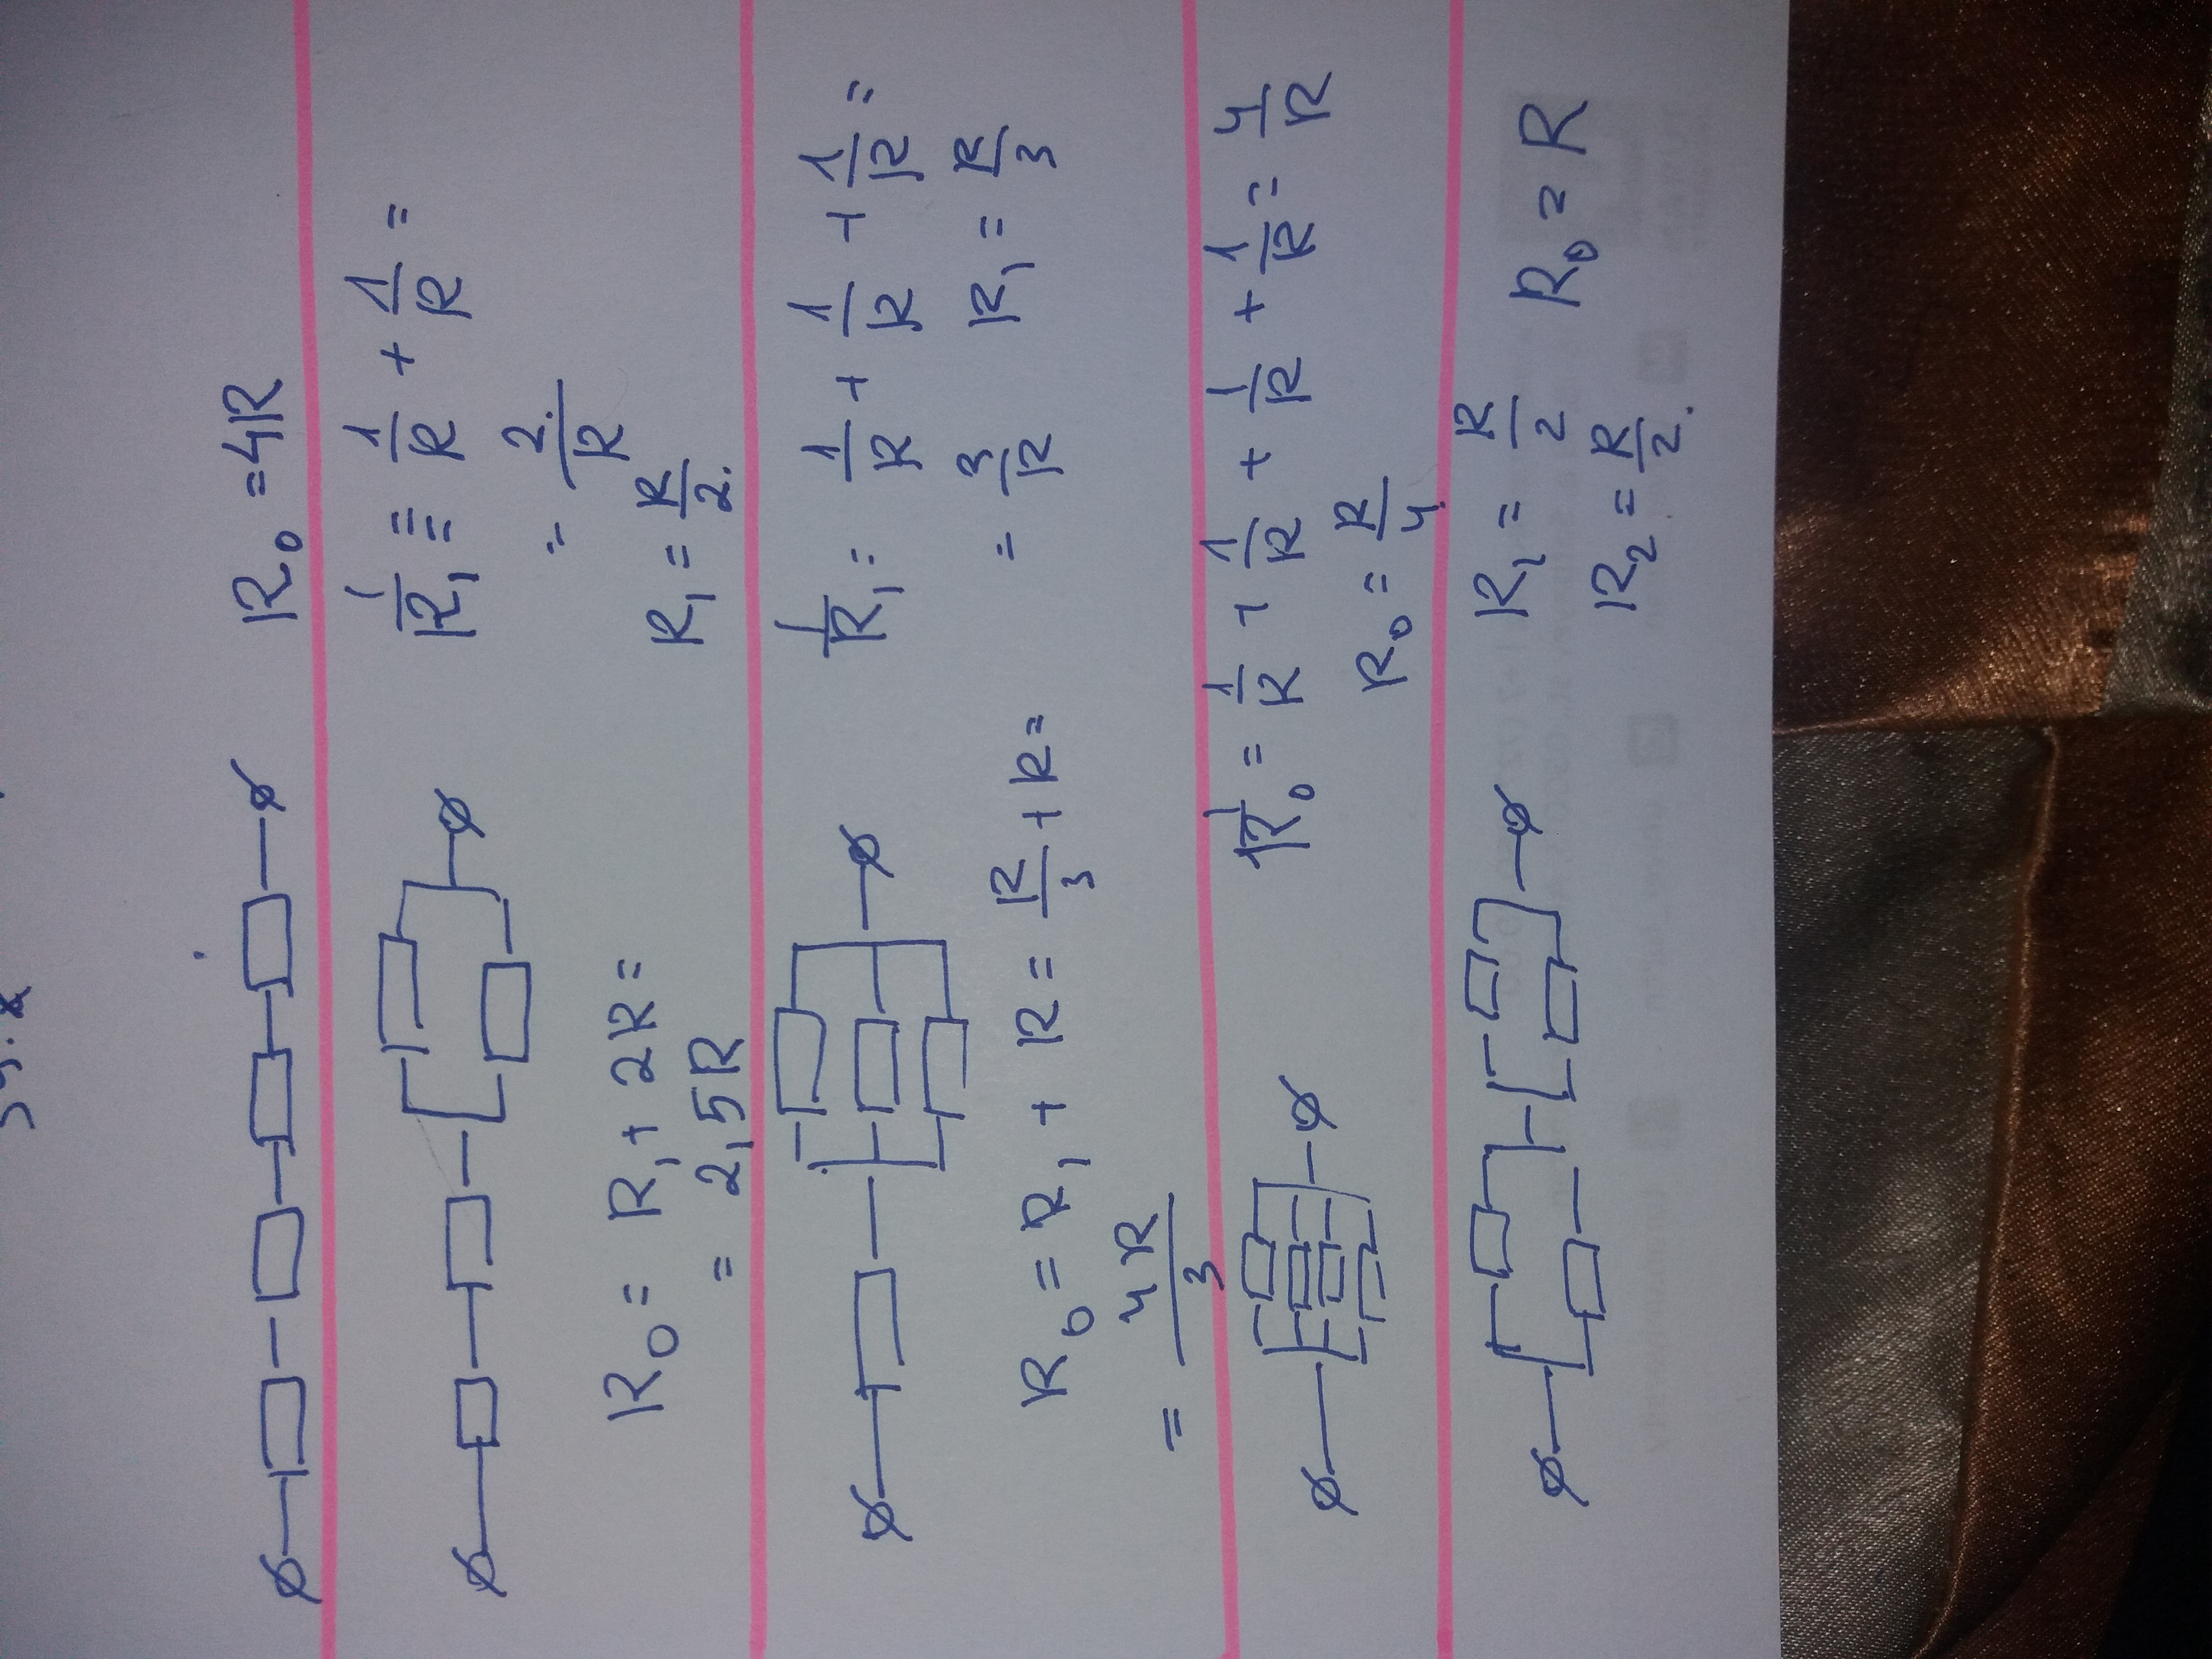 R₀ = 4R
1/R₁ = 1/R + 1/R =
= 2/R
R₁ = R/2.
R₀ = R₁ + 2R =
= 2,5R
1/R₁ = 1/R + 1/R + 1/R =
= 3/R R₁ = R/3
R₀ = R₁ + R = R/3 + R =
= 4R/3
1/R₀ = 1/R + 1/R + 1/R + 1/R = 4/R
R₀ = R/4
R₁ = R/2 R₀ = R
R₂ = R/2.